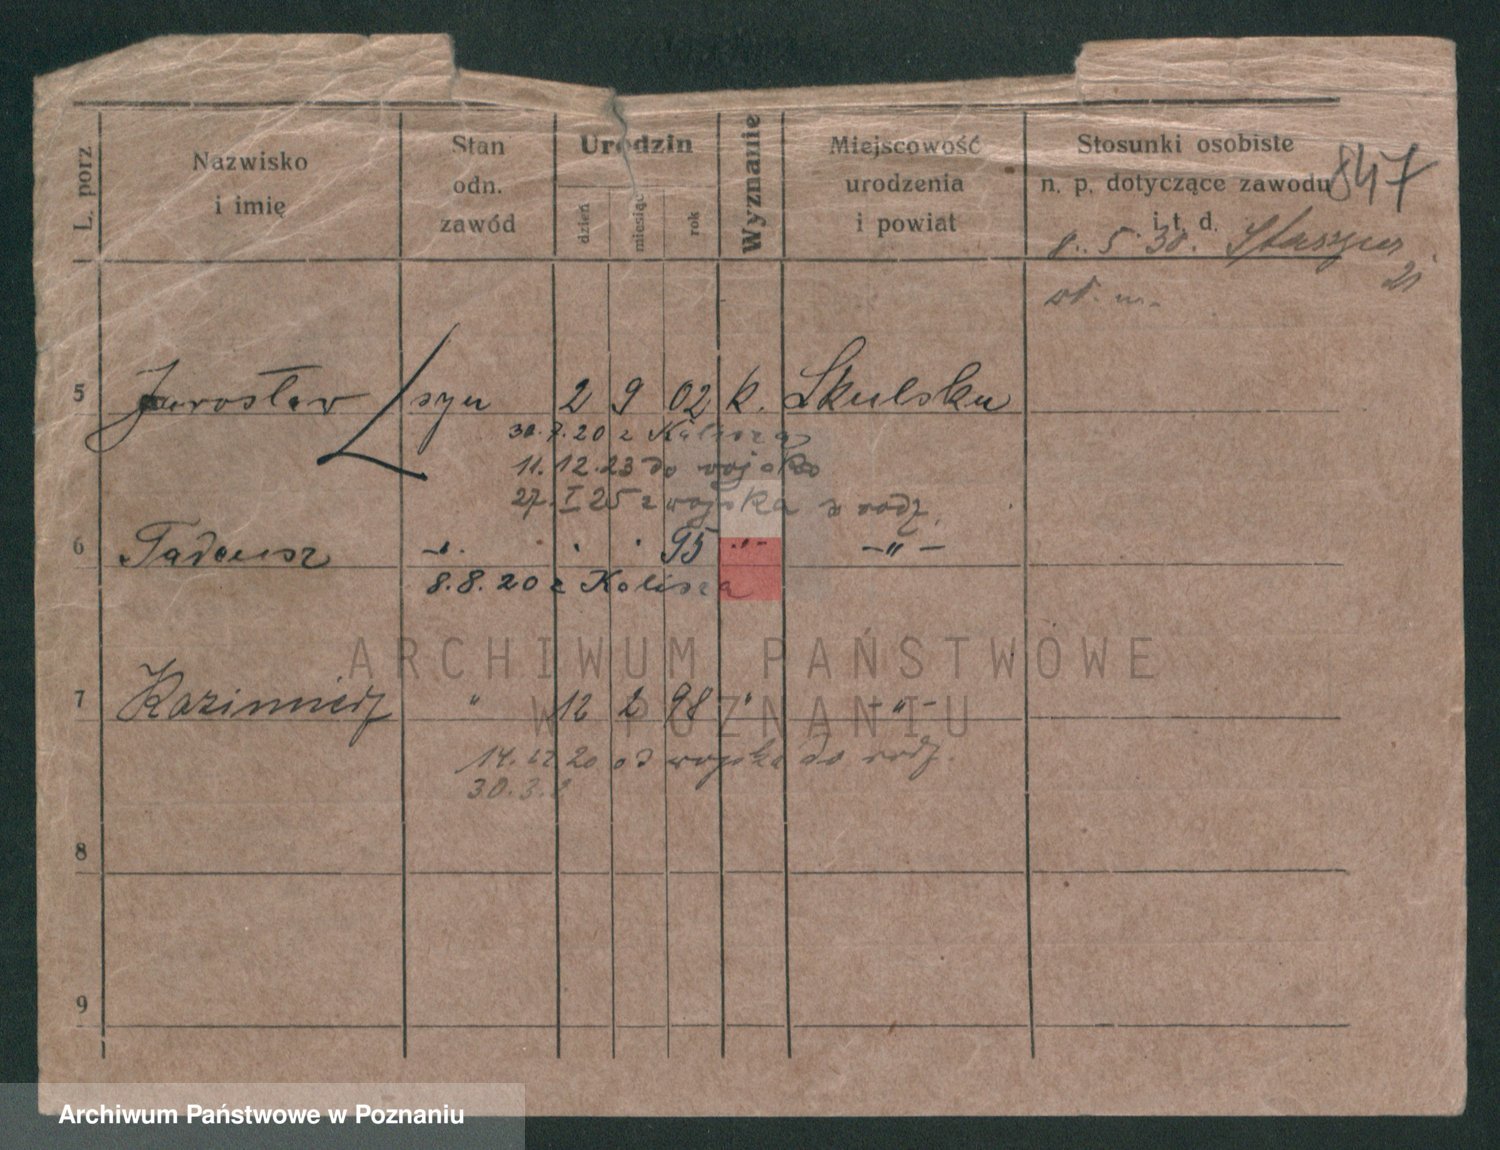 L. porz
Nazwisko
i imię
Stan
odn.
zawód
Urodzin
dzień
miesiąc
rok
Wyznanie
Miejscowość
urodzenia
i powiat
Stosunki osobiste
n. p. dotyczące zawodu
i. t. d.
847
8. 5. 30.
21
5 Jarosław syn 2 9 02 k. Skulsku
30.7.20 z Kalisza
11.12.23 do wojska
27. I 25 z wojska z rodz.
6 Tadeusz -"- 95 -"- -"-
8.8.20 z Kalisza
7 Kazimierz " 12 2 98 " -"-
14. 12 20 od wojska do rodz.
30.3.2
8
9
ARCHIWUM PAŃSTWOWE
W POZNANIU
Archiwum Państwowe w Poznaniu